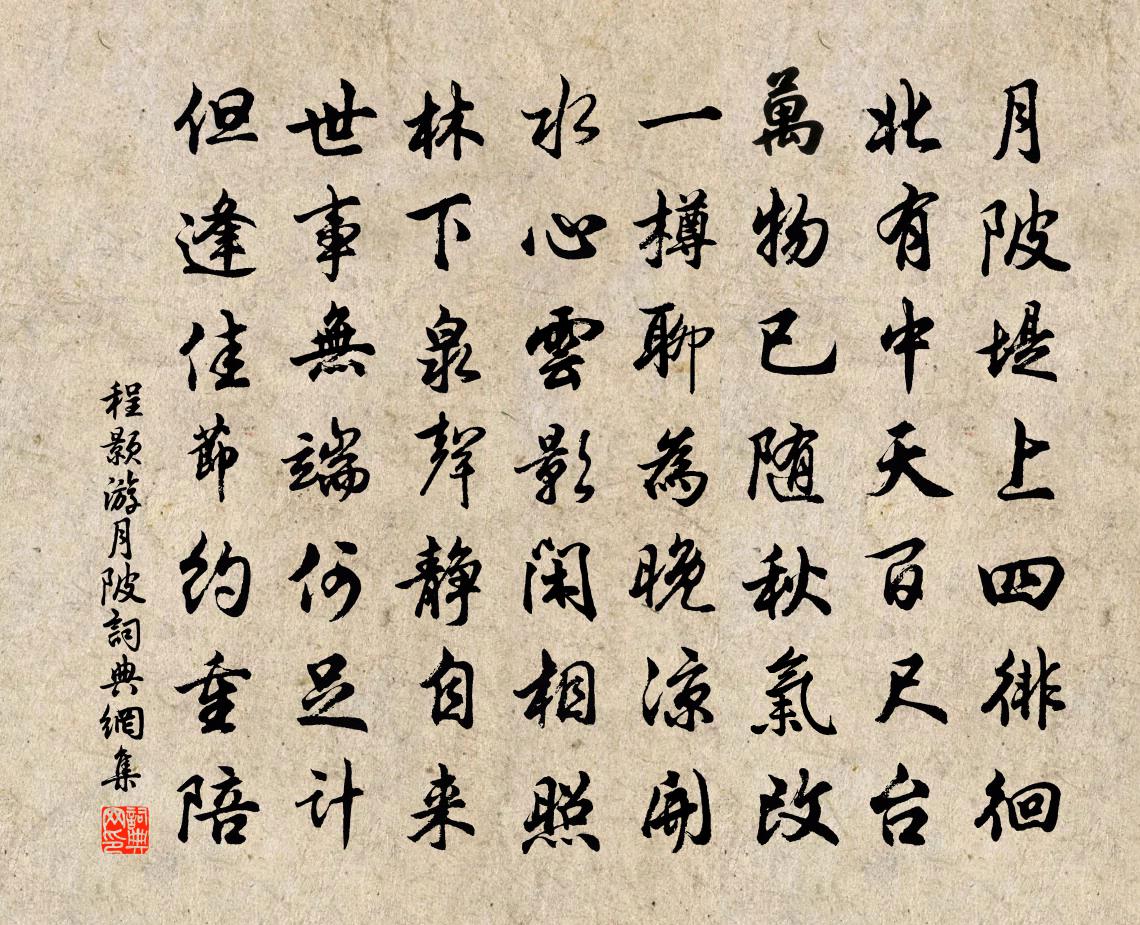 月陂堤上四徘徊
北有中天百尺台
萬物已随秋氣改
一樽聊為晚凉開
水心雲影閑相照
林下泉聲静自来
世事無端何足計
但逢佳節約重陪
程顥游月陂詞典網集
詞典网印